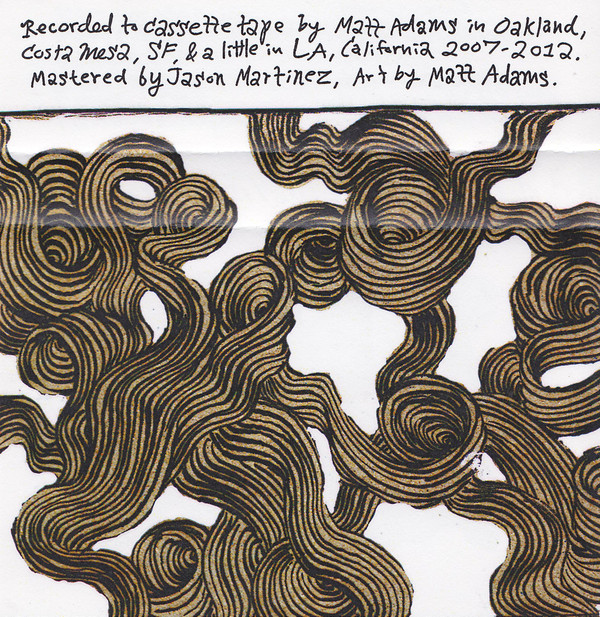 Recorded to cassette tape by Matt Adams in Oakland,
Costa Mesa, SF, & a little in LA, California 2007-2012.
Mastered by Jason Martinez, Art by Matt Adams.